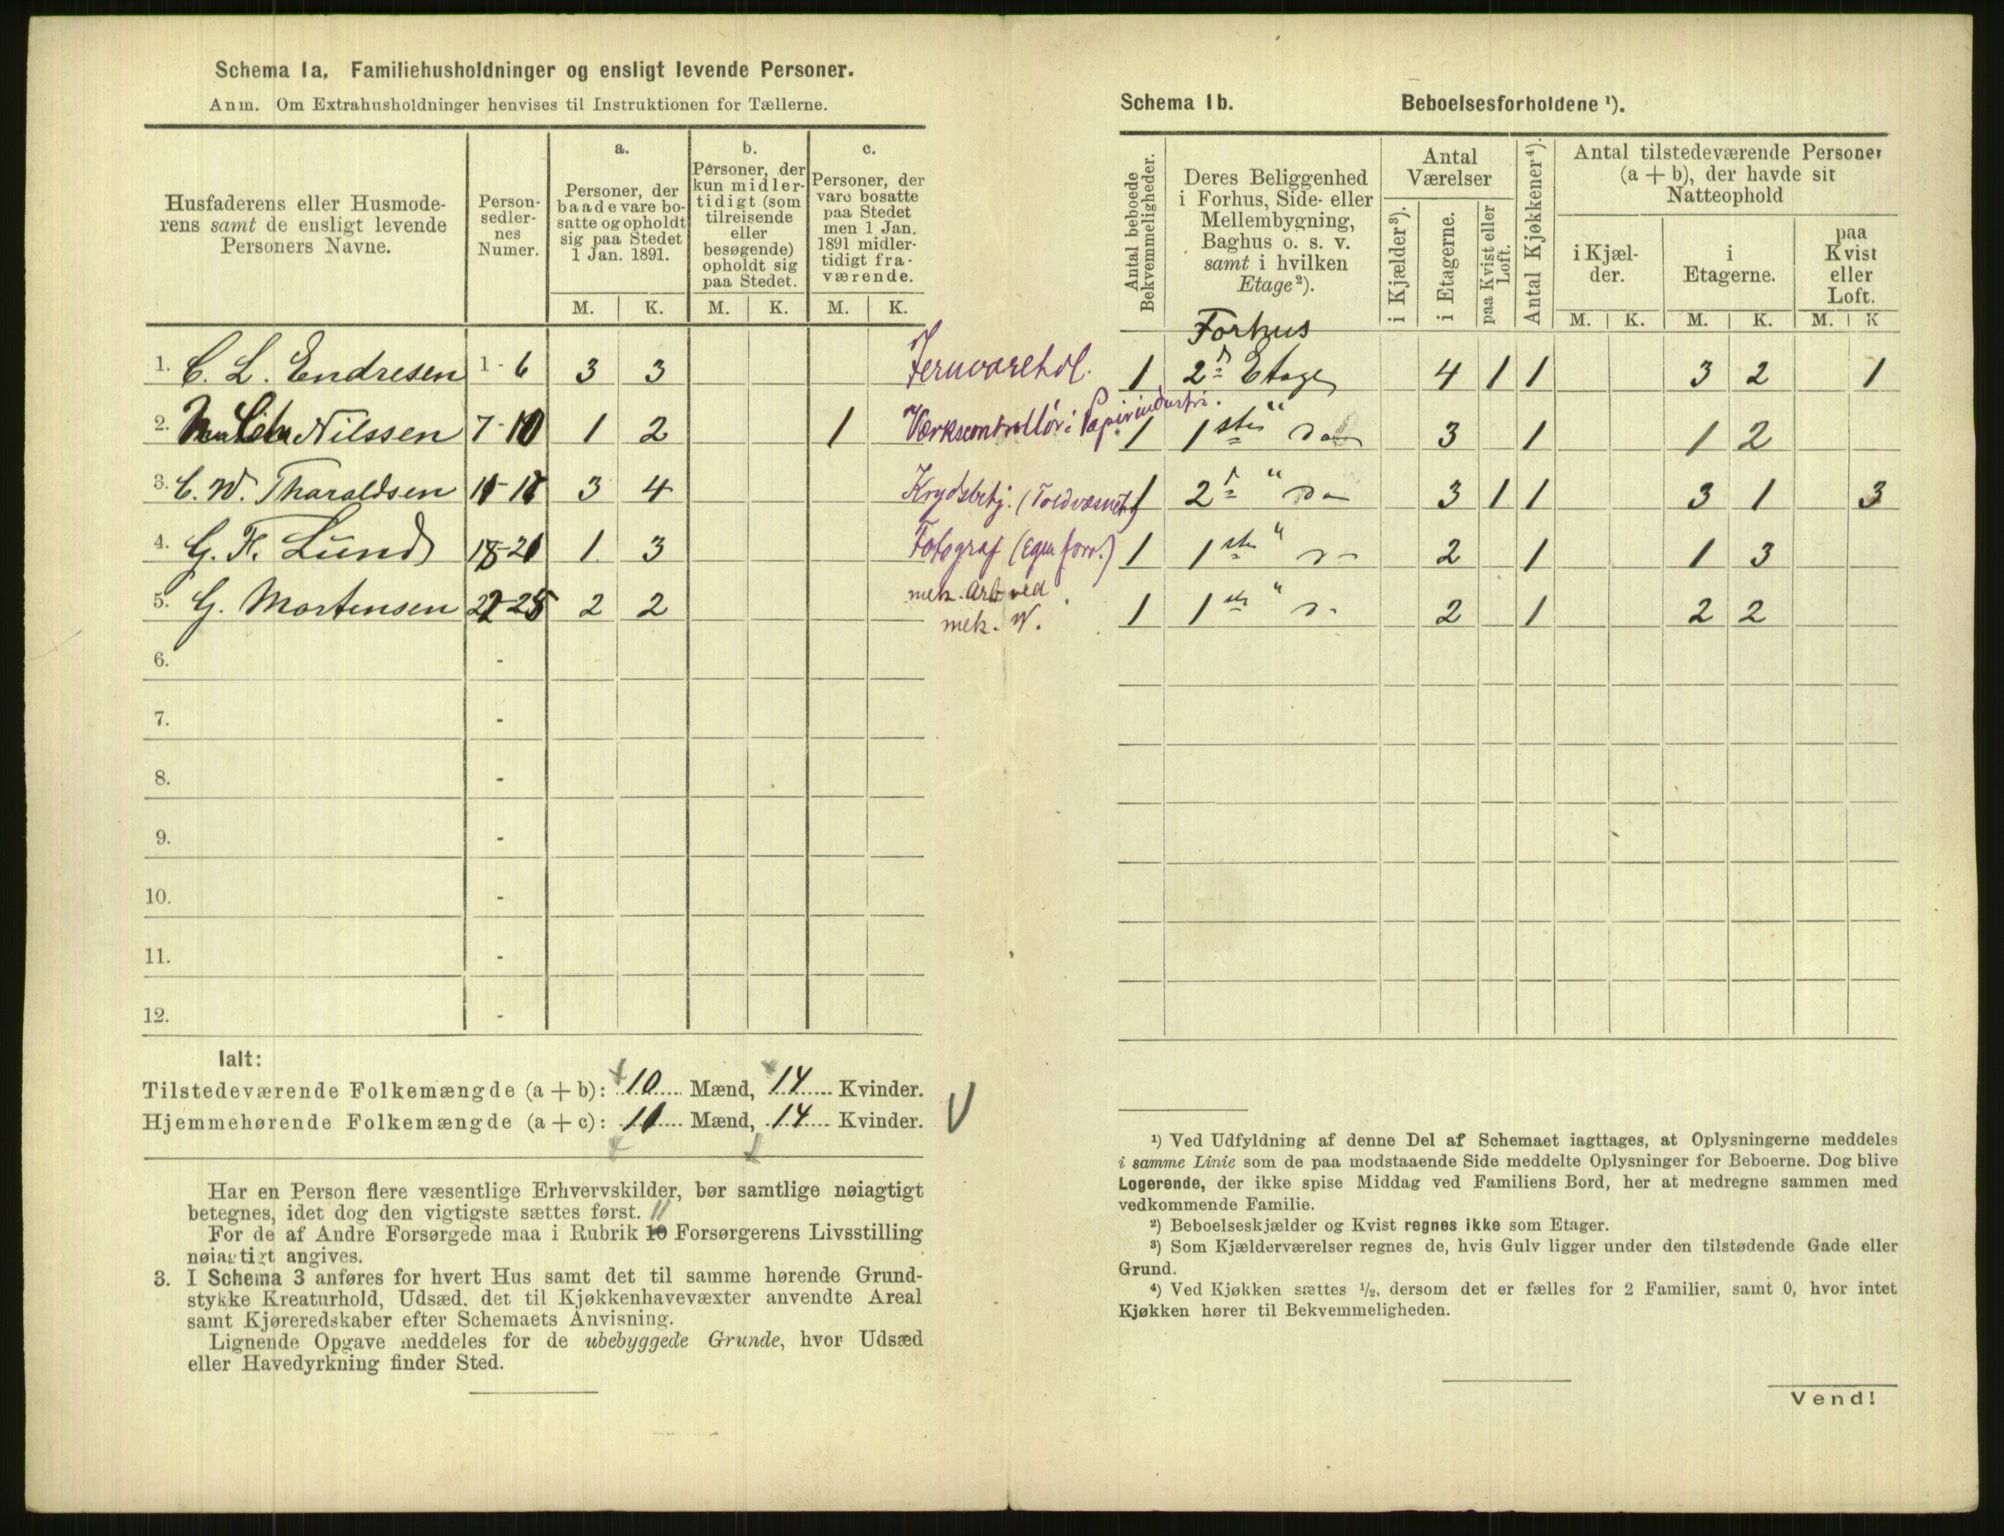 Schema 1a. Familiehusholdninger og ensligt levende Personer.
Anm. Om Extrahusholdninger henvises til Instruktionen for Tællerne.
Husfaderens eller Husmoderens samt de ensligt levende Personers Navne.
Personsedlernes Numer.
a.
Personer, der baade vare bosatte og opholdt sig paa Stedet 1 Jan. 1891.
b.
Personer, der kun midlertidigt (som tilreisende eller besøgende) opholdt sig paa Stedet.
c.
Personer, der vare bosatte paa Stedet men 1 Jan. 1891 midlertidigt fraværende.
M. K. M. K. M. K.
1. C. L. Endresen 1-6 3 3 Jernvarehdl.
2. Nilssen 7-10 1 2 1 Værkscontrollör i Papirindustri.
3. C. W. Tharaldsen 11-17 3 4 Krydsbetj. (Toldvæsnet)
4. G. F. Lund 18-21 1 3 Fotograf (egen forr.)
5. G. Mortensen 22-25 2 2 mek. Arb ved
mek. V.
6. -
7. -
8. -
9. -
10. -
11. -
12. -
Ialt:
Tilstedeværende Folkemængde (a + b): 10 Mænd, 14 Kvinder.
Hjemmehørende Folkemængde (a + c): 11 Mænd, 14 Kvinder.
Har en Person flere væsentlige Erhvervskilder, bør samtlige nøiagtigt
betegnes, idet dog den vigtigste sættes først. 11
For de af Andre Forsørgede maa i Rubrik 10 Forsørgerens Livsstilling
nøiagtigt angives.
3. I Schema 3 anføres for hvert Hus samt det til samme hørende Grund-
stykke Kreaturhold, Udsæd, det til Kjøkkenhavevæxter anvendte Areal
samt Kjøreredskaber efter Schemaets Anvisning.
Lignende Opgave meddeles for de ubebyggede Grunde, hvor Udsæd
eller Havedyrkning finder Sted.
Schema 1b. Beboelsesforholdene ¹).
Antal beboede Bekvemmeligheder.
Deres Beliggenhed i Forhus, Side- eller Mellembygning, Baghus o. s. v. samt i hvilken Etage²).
Antal Værelser
i Kjælder³).
i Etagerne.
paa Kvist eller Loft.
Antal Kjøkkener⁴).
Antal tilstedeværende Personer (a + b), der havde sit Natteophold
i Kjælder.
i Etagerne.
paa Kvist eller Loft.
M. K. M. K. M. K
Forhus
1 2den Etage 4 1 1 3 2 1
1 1ste " Do 3 1 1 2
1 2den " Do 3 1 1 3 1 3
1 1ste " Do 2 1 1 3
1 1ste " Do 2 1 2 2
¹) Ved Udfyldning af denne Del af Schemaet iagttages, at Oplysningerne meddeles
i samme Linie som de paa modstaaende Side meddelte Oplysninger for Beboerne. Dog blive
Logerende, der ikke spise Middag ved Familiens Bord, her at medregne sammen med
vedkommende Familie.
²) Beboelseskjælder og Kvist regnes ikke som Etager.
³) Som Kjælderværelser regnes de, hvis Gulv ligger under den tilstødende Gade eller
Grund.
⁴) Ved Kjøkken sættes ½, dersom det er fælles for 2 Familier, samt 0, hvor intet
Kjøkken hører til Bekvemmeligheden.
Vend!